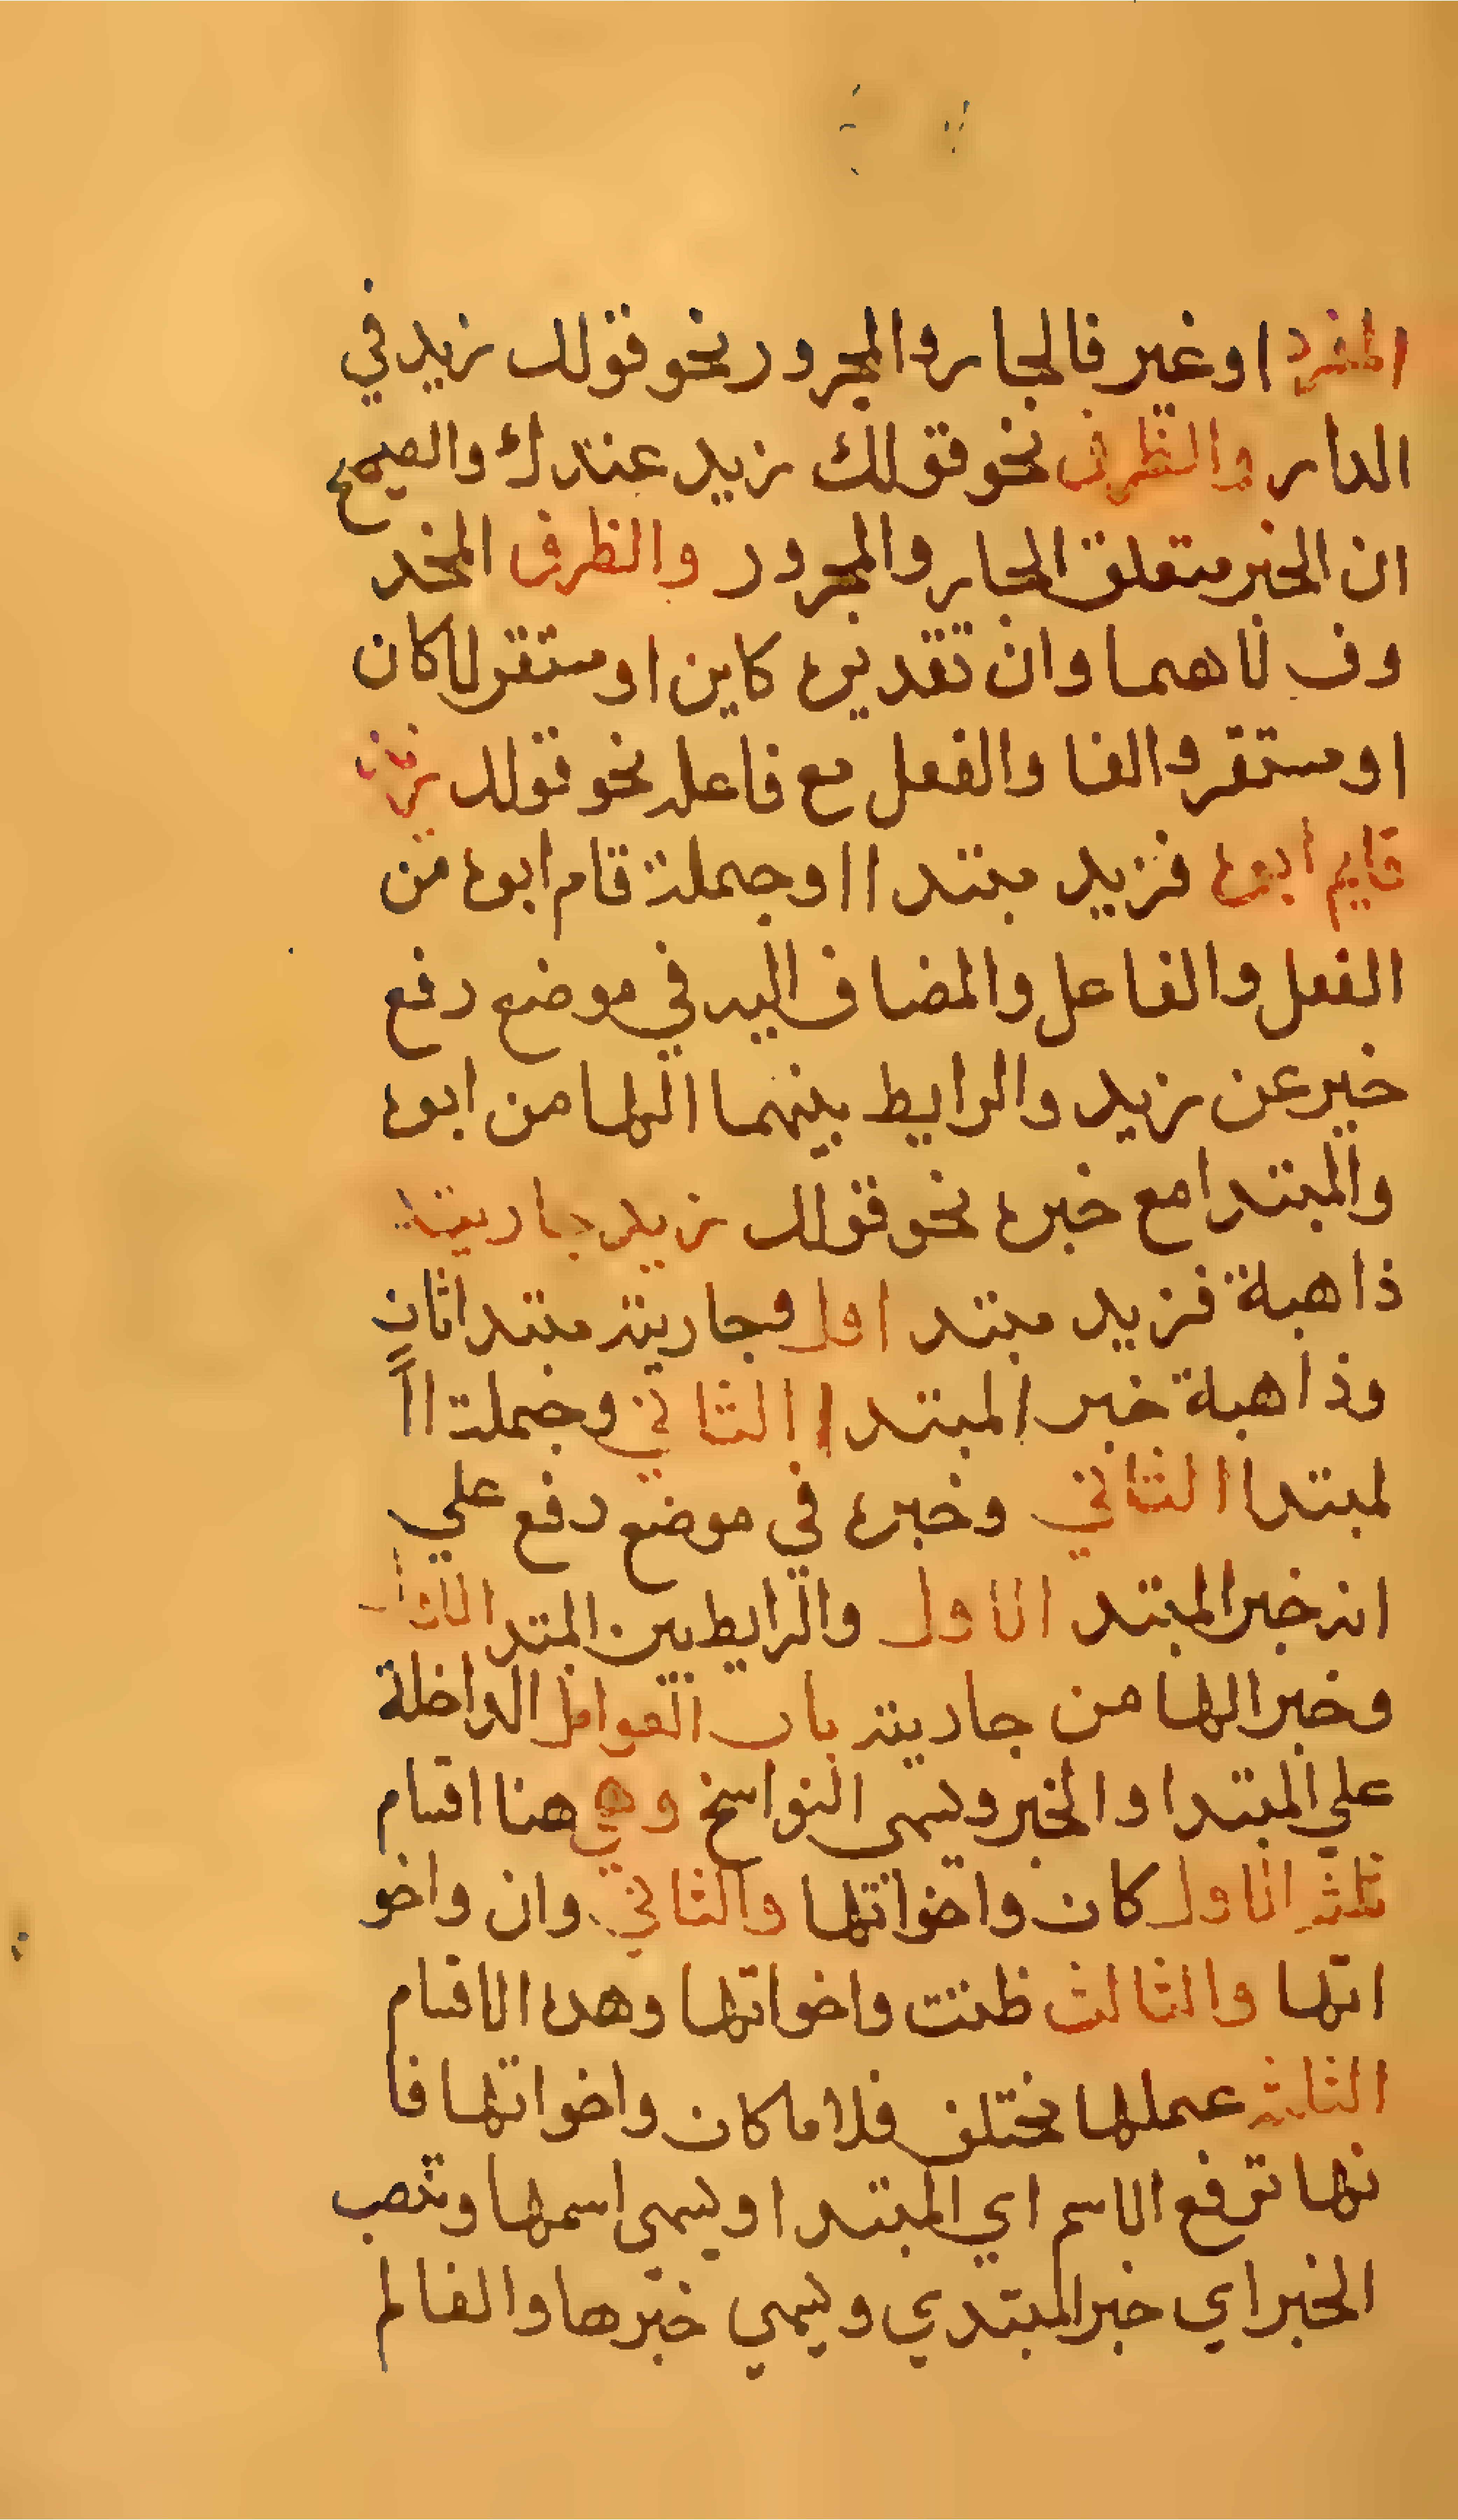 المفرد او غير فالجار والمجرور نحو قولك زيد في
الدار والظرف نحو قولك زيد عندك والصيح
ان الخبر متعلق الجار والمجرور والظرف المخد
وف لاهما وان تقديره كاين او ستقر لا كان
او ستقر والفا والفعل مع فاعله نحو قولك زيد
قايم ابوه فزيد مبتد ا ا وجملة قام ابوه من
الفعل والفاعل والمضاف اليه في موضع رفع
خبر عن زيد والرابط بينهما الها من ابوه
والمبتدا مع خبره نحو قولك زيد جاريته
ذاهبة فزيد مبتد اول وجاريته مبتدا ثان
وذاهبة خبر المبتدا الثاني وجملة ا ا
لمبتدا الثاني وخبره في موضع رفع علي
انه خبر المبتد الاول والرابط بين المتد
وخبر الها من جاريته باب العوامل الداخلة
علي المبتدا والخبر ويسمى النواسخ وهي هنا اقسام
ثلثه الاول كان واخواتها والثاني وان واخو
اتها والثالث ظننت واخواتها وهده الاقسام
الثلثه عملها نختلف فلاما كان واخواتها فا
نها ترفع الاسم اي المبتدا ويسمى اسمها وتنصب
الخبر اي خبر المبتدي ويسمي خبرها والفالم